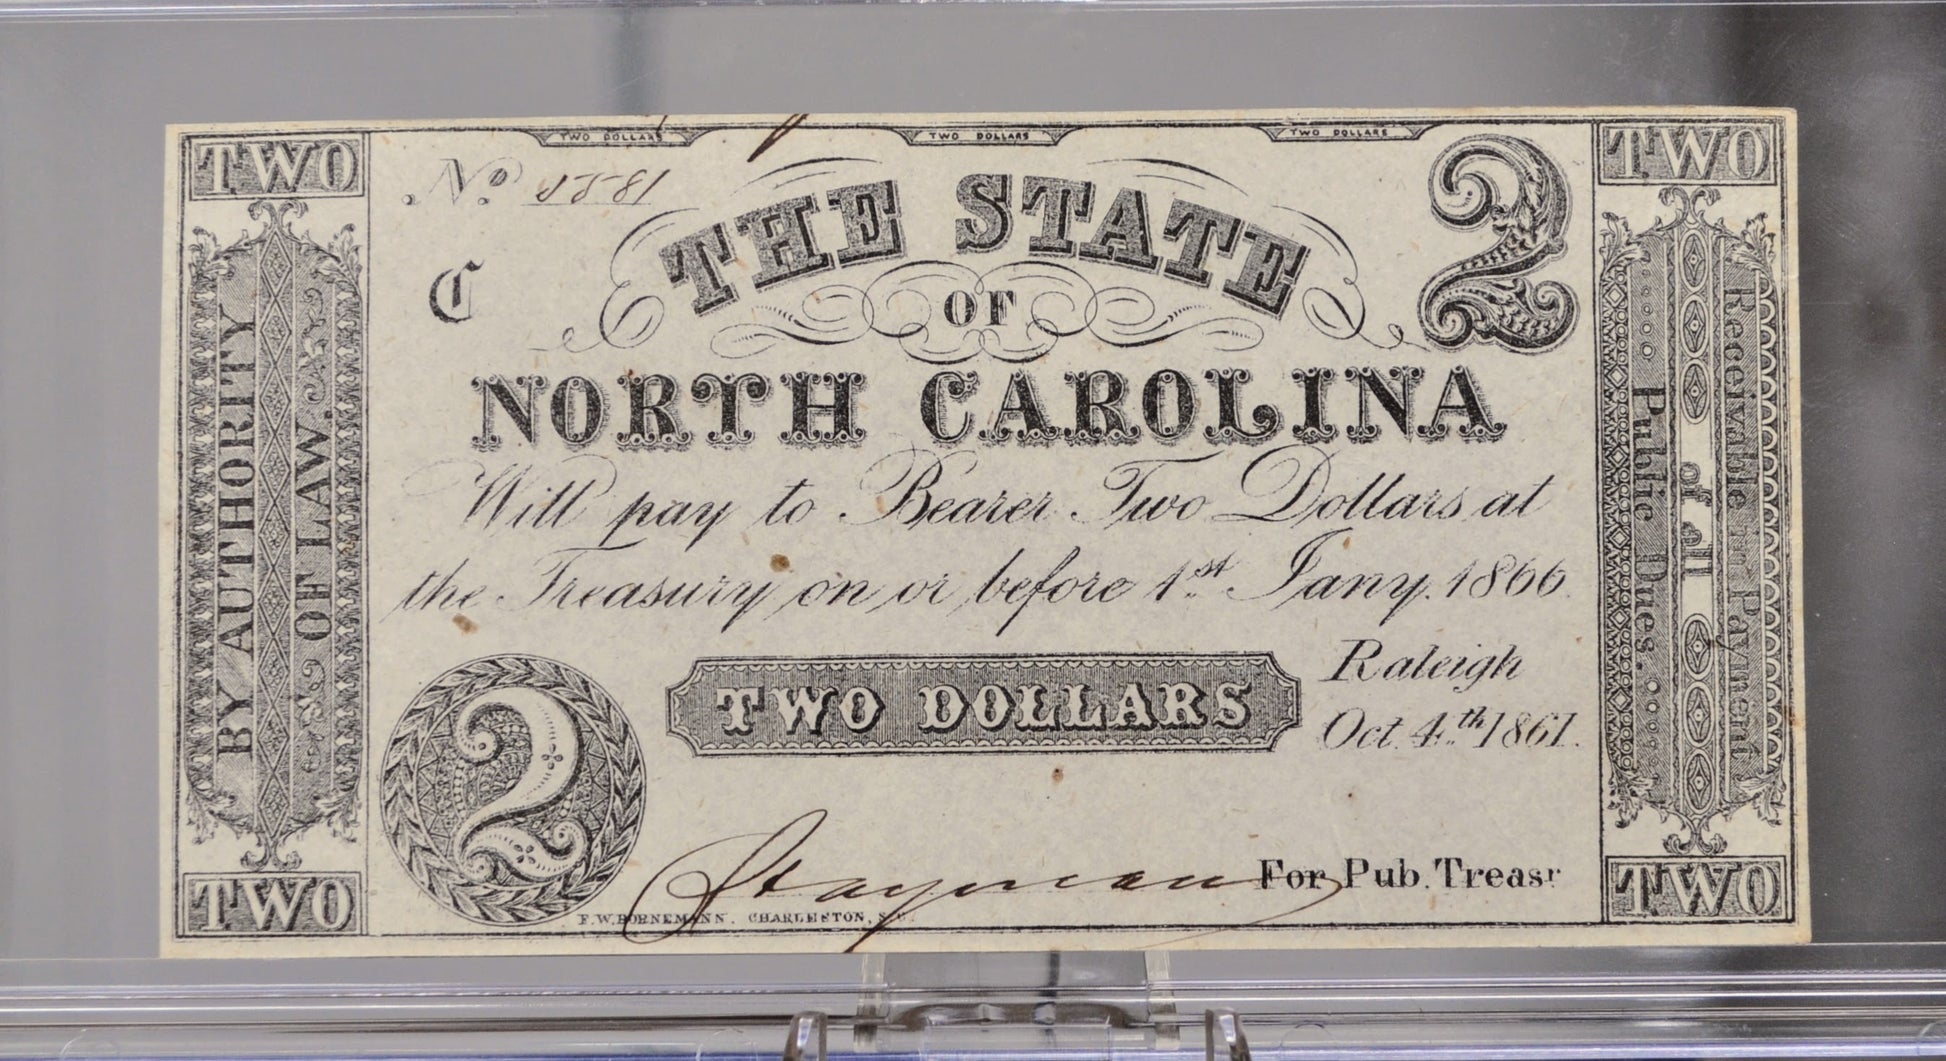 TWO
TWO DOLLARS
TWO DOLLARS
TWO DOLLARS
TWO
No.
C
THE STATE
2
OF
NORTH CAROLINA
Will pay to Bearer Two Dollars at
the Treasury on or before 1st Jany. 1866.
BY AUTHORITY
OF LAW.
Receivable in Payment
of all
Public Dues.
TWO DOLLARS
Raleigh
Oct. 4th 1861.
2
For Pub. Treasr
F.W. BORNEMANN. CHARLESTON, S.C.
TWO
TWO